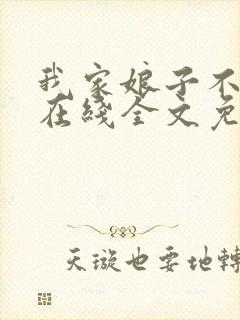 我家娘子不
在綫全文免
天璇也要地轉